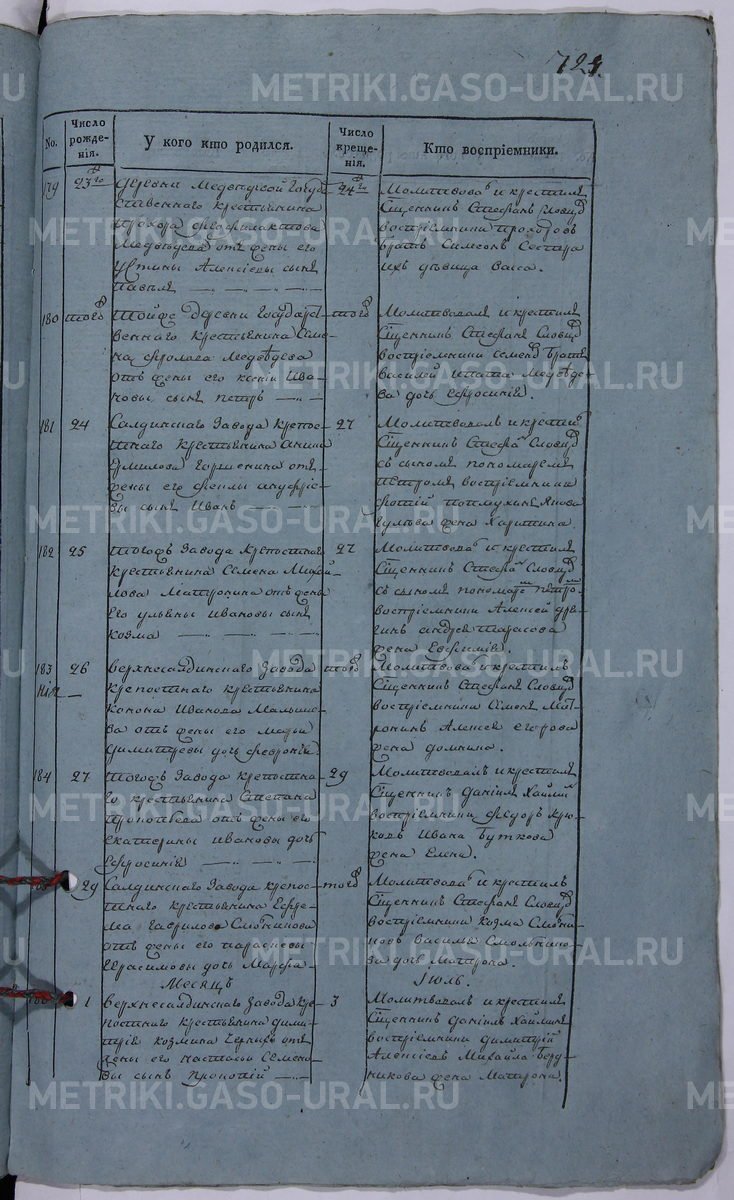 724.
No.
Число рожде-
нія.
У кого кто родился.
Число креще-
нія.
Кто воспріемники.
179
23го
деревни Медведевой Госуда
ственнаго крестьянина
Прохора
Медведева отъ жены его
Устины Алексіевы сынъ
Павелъ
24го
Молитвова и крестилъ
Сщенникъ Стефанъ Словцо
воспріемники Прохоровъ
братъ Симеонъ Сестра
ихъ девица Васса.
180
тогд
тойже Деревни Государст
веннаго крестьянина Семе
на Фролова Медведева
отъ жены его Ксеніи Ива
новы сынъ Петръ
тогд
Молитвовалъ и крестилъ
Сщенникъ Стефанъ Словцо
воспріемники Семенд братъ
Василей Медведе
ва дочь Ефросинія.
181
24
Салдинскаго Завода крепос
тнаго крестьянина
Ермилова отъ
жены его Феклы
вы сынъ Иванъ
27
Молитвовалъ и крести
Сщенникъ Стефа Словцо
съ сыномъ пономаремъ
Петромъ воспріемники
жена Харитина.
182
25
тогожъ Завода Крепостнаго
Крестьянина Семена Михай
лова Матронина отъ жены
Его Ульяны Ивановы сынъ
Козма
27
Молитвова и крестилъ
Сщенникъ Стефа Словцо
съ сыномъ понома Петро
воспріемники Алексей
Андрея Тарасова
жена Евфимія.
183
26
Верхнесалдинскаго Завода
крепостнаго крестьянина
Конона Иванова Малыше
ва отъ жены его Марьи
Димитревы дочь Февронія
тогд
Молитвова и крестилъ
Сщенникъ Стефанъ Словцо
воспріемники Семенъ Мат
ронинъ Алексея Егорова
жена Домнина.
184
27
тогожъ Завода крепостна
го крестьянина Степана
Прокопьева отъ жены его
Екатерины Ивановы дочь
Ефросинія
29
Молитвовалъ и крестилъ
Сщенникъ Даніилъ Хайми
воспріемники Федоръ Крю
ковъ Ивана Буткова
жена Елена.
29
Салдинскаго Завода крепос
тнаго крестьянина Ефре
ма Гаврилова Смолнинова
отъ жены его Параскевы
Герасимовы дочь Марфа
тогд
Молитвова и крестилъ
Сщенникъ Стефанъ Словцо
воспріемники Козма Смолни
новъ Василья Смольнино
ва дочь Матрона.
Месяцъ
Іюль.
1
Верхнесалдинскаго Завода кре
постнаго крестьянина Дими
трія Козмина отъ
жены его Настасьи Семено
вы сынъ Прокопій
3
Молитвовалъ и крестилъ
Сщенникъ Даніилъ Хайминъ
воспріемники Димитрій
Алексіевъ Михайла Берд
никова жена Матрона.
METRIKI.GASO-URAL.RU